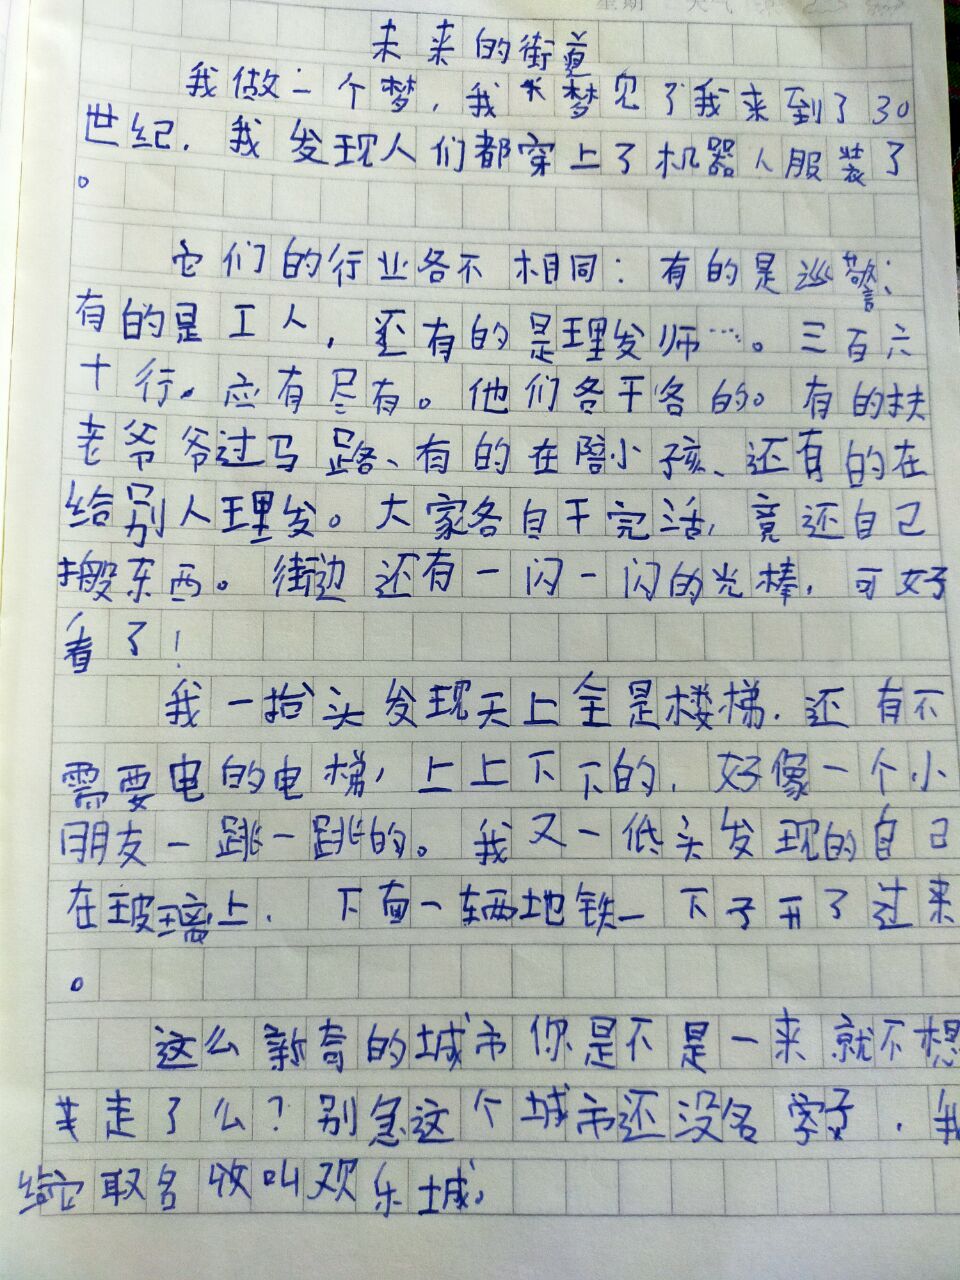 未来的街道
我做一个梦，我梦见了我来到了30
世纪．我发现人们都穿上了机器人服装了
。
它们的行业各不相同：有的是巡警；
有的是工人，还有的是理发师…。三百六
十行。应有尽有。他们各干各的。有的扶
老爷爷过马路、有的在陪小孩、还有的在
给别人理发。大家各自干完活，竟还自己
搬东西。街边还有一闪一闪的光棒，可好
看了！
我一抬头发现天上全是楼梯．还有不
需要电的电梯，上上下下的，好像一个小
朋友一跳一跳的。我又一低头发现的自己
在玻璃上．下面一辆地铁一下子开了过来
。
这么新奇的城市你是不是一来就不想
走了么？别急这个城市还没名字，我
给它取名叫欢乐城。